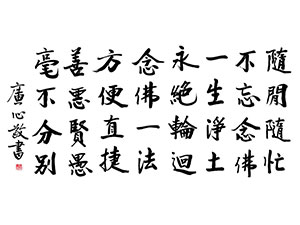 隨閒隨忙
不忘念佛
一生淨土
永絕輪迴
念佛一法
方便直捷
善惡賢愚
毫不分别
廣心敬書